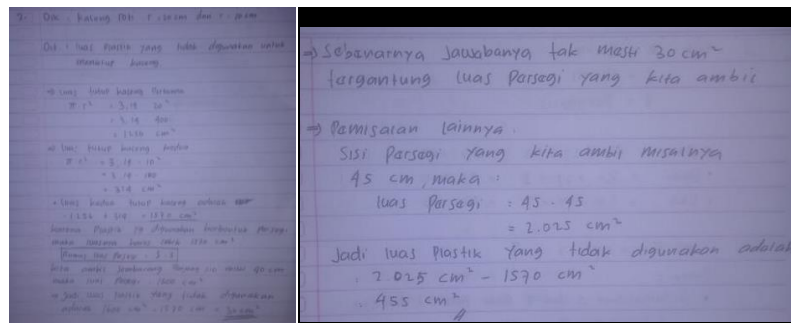 3. Dik : kaleng roti r = 20 cm dan r = 10 cm
Dit : luas Plastik yang tidak digunakan untuk
menutup kaleng.
⇒ luas tutup kaleng Pertama
π r² = 3.14 20²
= 3.14 400
= 1256 cm²
⇒ luas tutup kaleng kedua
π r² = 3.14 . 10²
= 3.14 100
= 314 cm²
• luas kedua tutup kaleng adalah
1256 + 314 = 1570 cm²
karena Plastik yg digunakan berbentuk Persegi
maka luasnya harus lebih 1570 cm²
Rumus luas Persegi = s . s
kita ambil sembarang 40 cm
maka luas Persegi 1600 cm²
⇒ Jadi luas Plastik yang tidak digunakan
adalah 1600 cm² - 1570 cm² = 30 cm²
⇒ Sebenarnya Jawabanya tak mesti 30 cm²
tergantung luas Persegi yang kita ambil
⇒ Pemisalan lainnya.
Sisi Persegi yang kita ambil misalnya
45 cm, maka :
luas Persegi = 45 . 45
= 2.025 cm²
Jadi luas Plastik yang tidak digunakan adalah
. 2.025 cm² - 1570 cm²
. 455 cm²